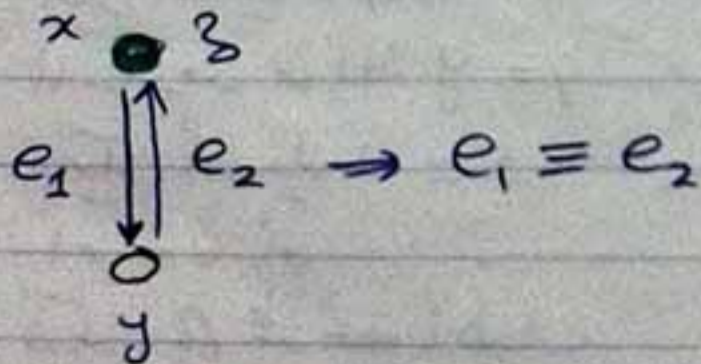 x z
e₁ e₂ → e₁ ≡ e₂
y